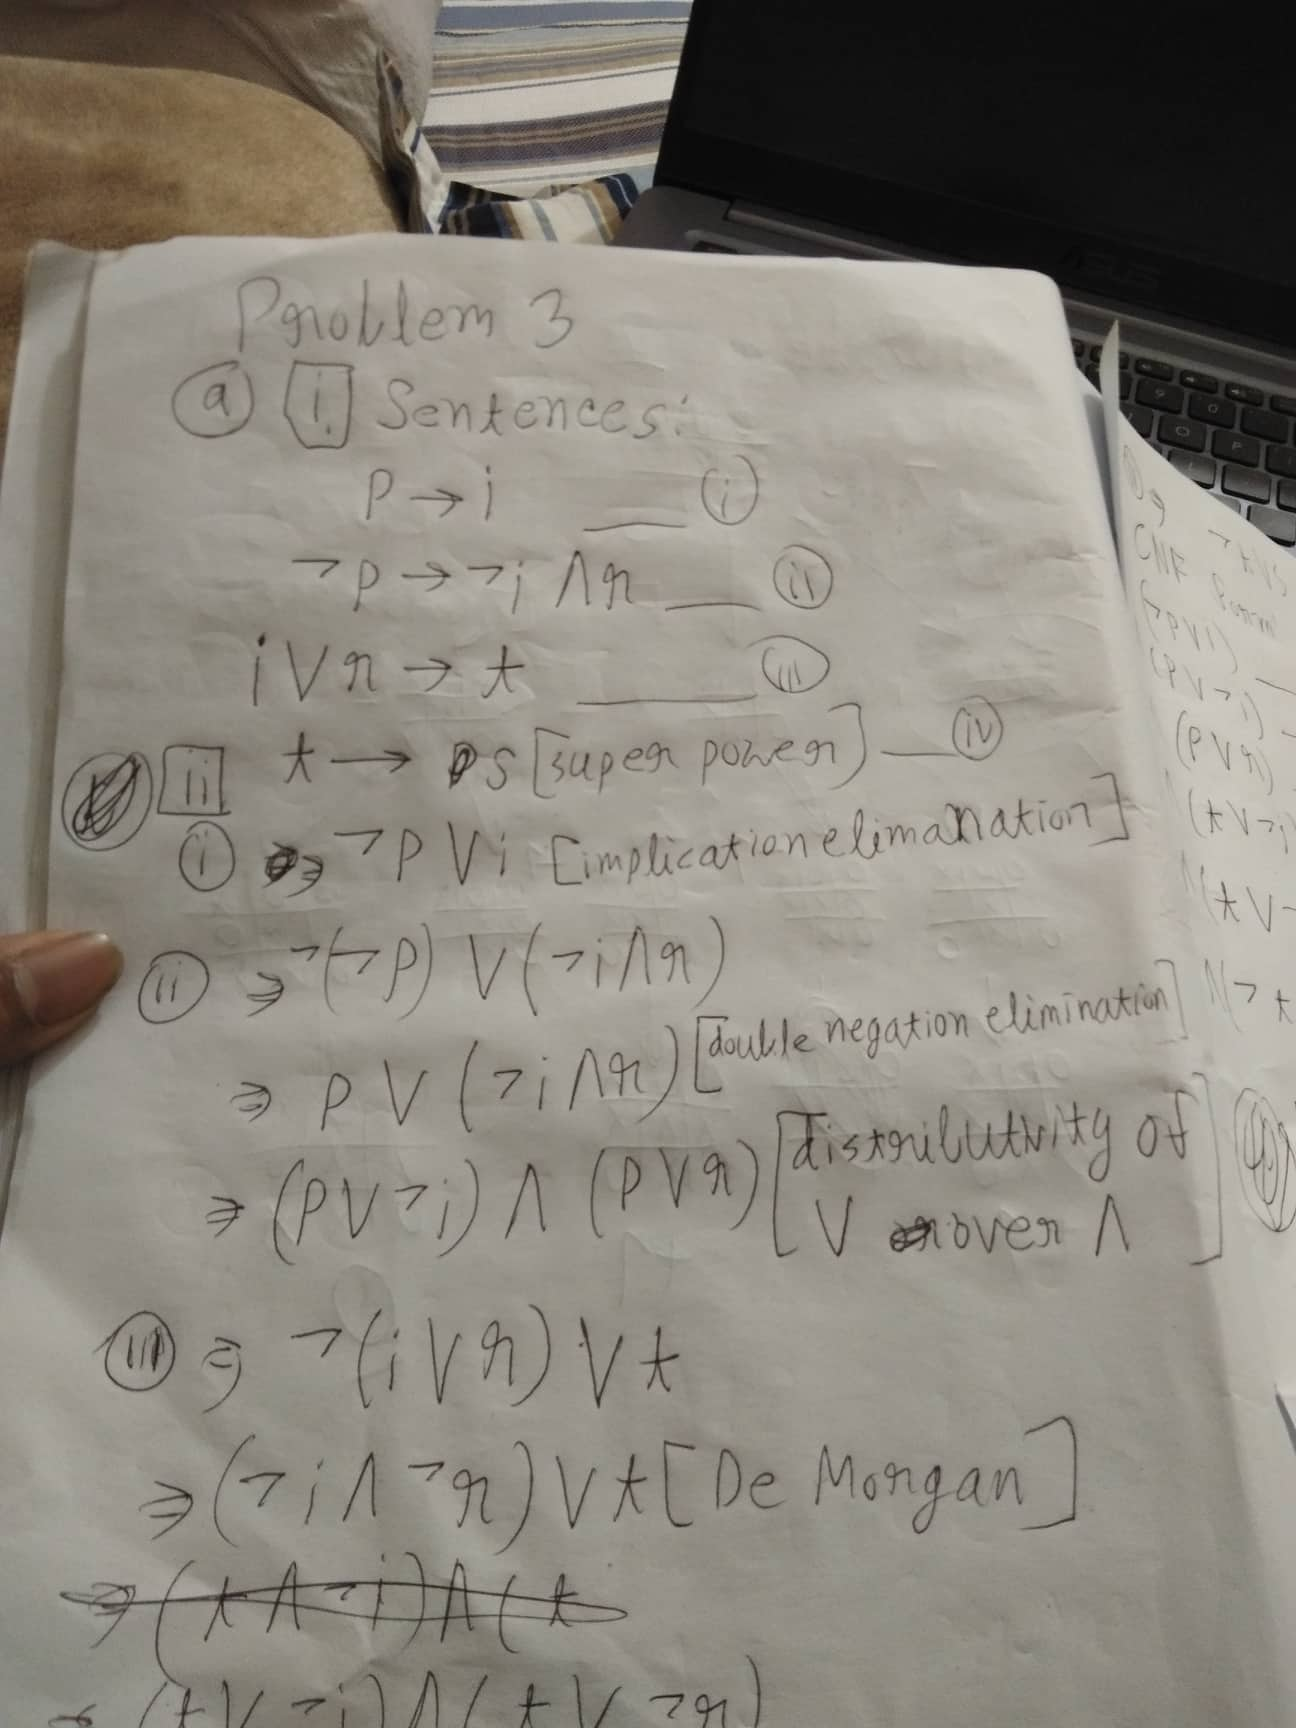 Problem 3
(a) [i.] Sentences:
p → i ___ (i)
¬p → ¬i ∧ r ___ (ii)
i ∨ r → t ___ (iii)
[ii] t → s [super power] — (iv)
(i) ⇒ ¬p ∨ i [implication elimanation]
(ii) ⇒ ¬(¬p) ∨ (¬i ∧ r)
⇒ p ∨ (¬i ∧ r) [double negation elimination]
⇒ (p ∨ ¬i) ∧ (p ∨ r) [distributivity of
∨ over ∧]
(iii) ⇒ ¬(i ∨ r) ∨ t
⇒ (¬i ∧ ¬r) ∨ t [De Morgan]
⇒ (t ∧ ¬i) ∧ (t
⇒ (t ∨ ¬i) ∧ (t ∨ ¬r)
¬t ∨ s
CNF
(¬p ∨ i)
(p ∨ ¬i)
(p ∨ r)
(t ∨ ¬i)
∧ (t ∨ ¬
∧ (¬t
ASUS